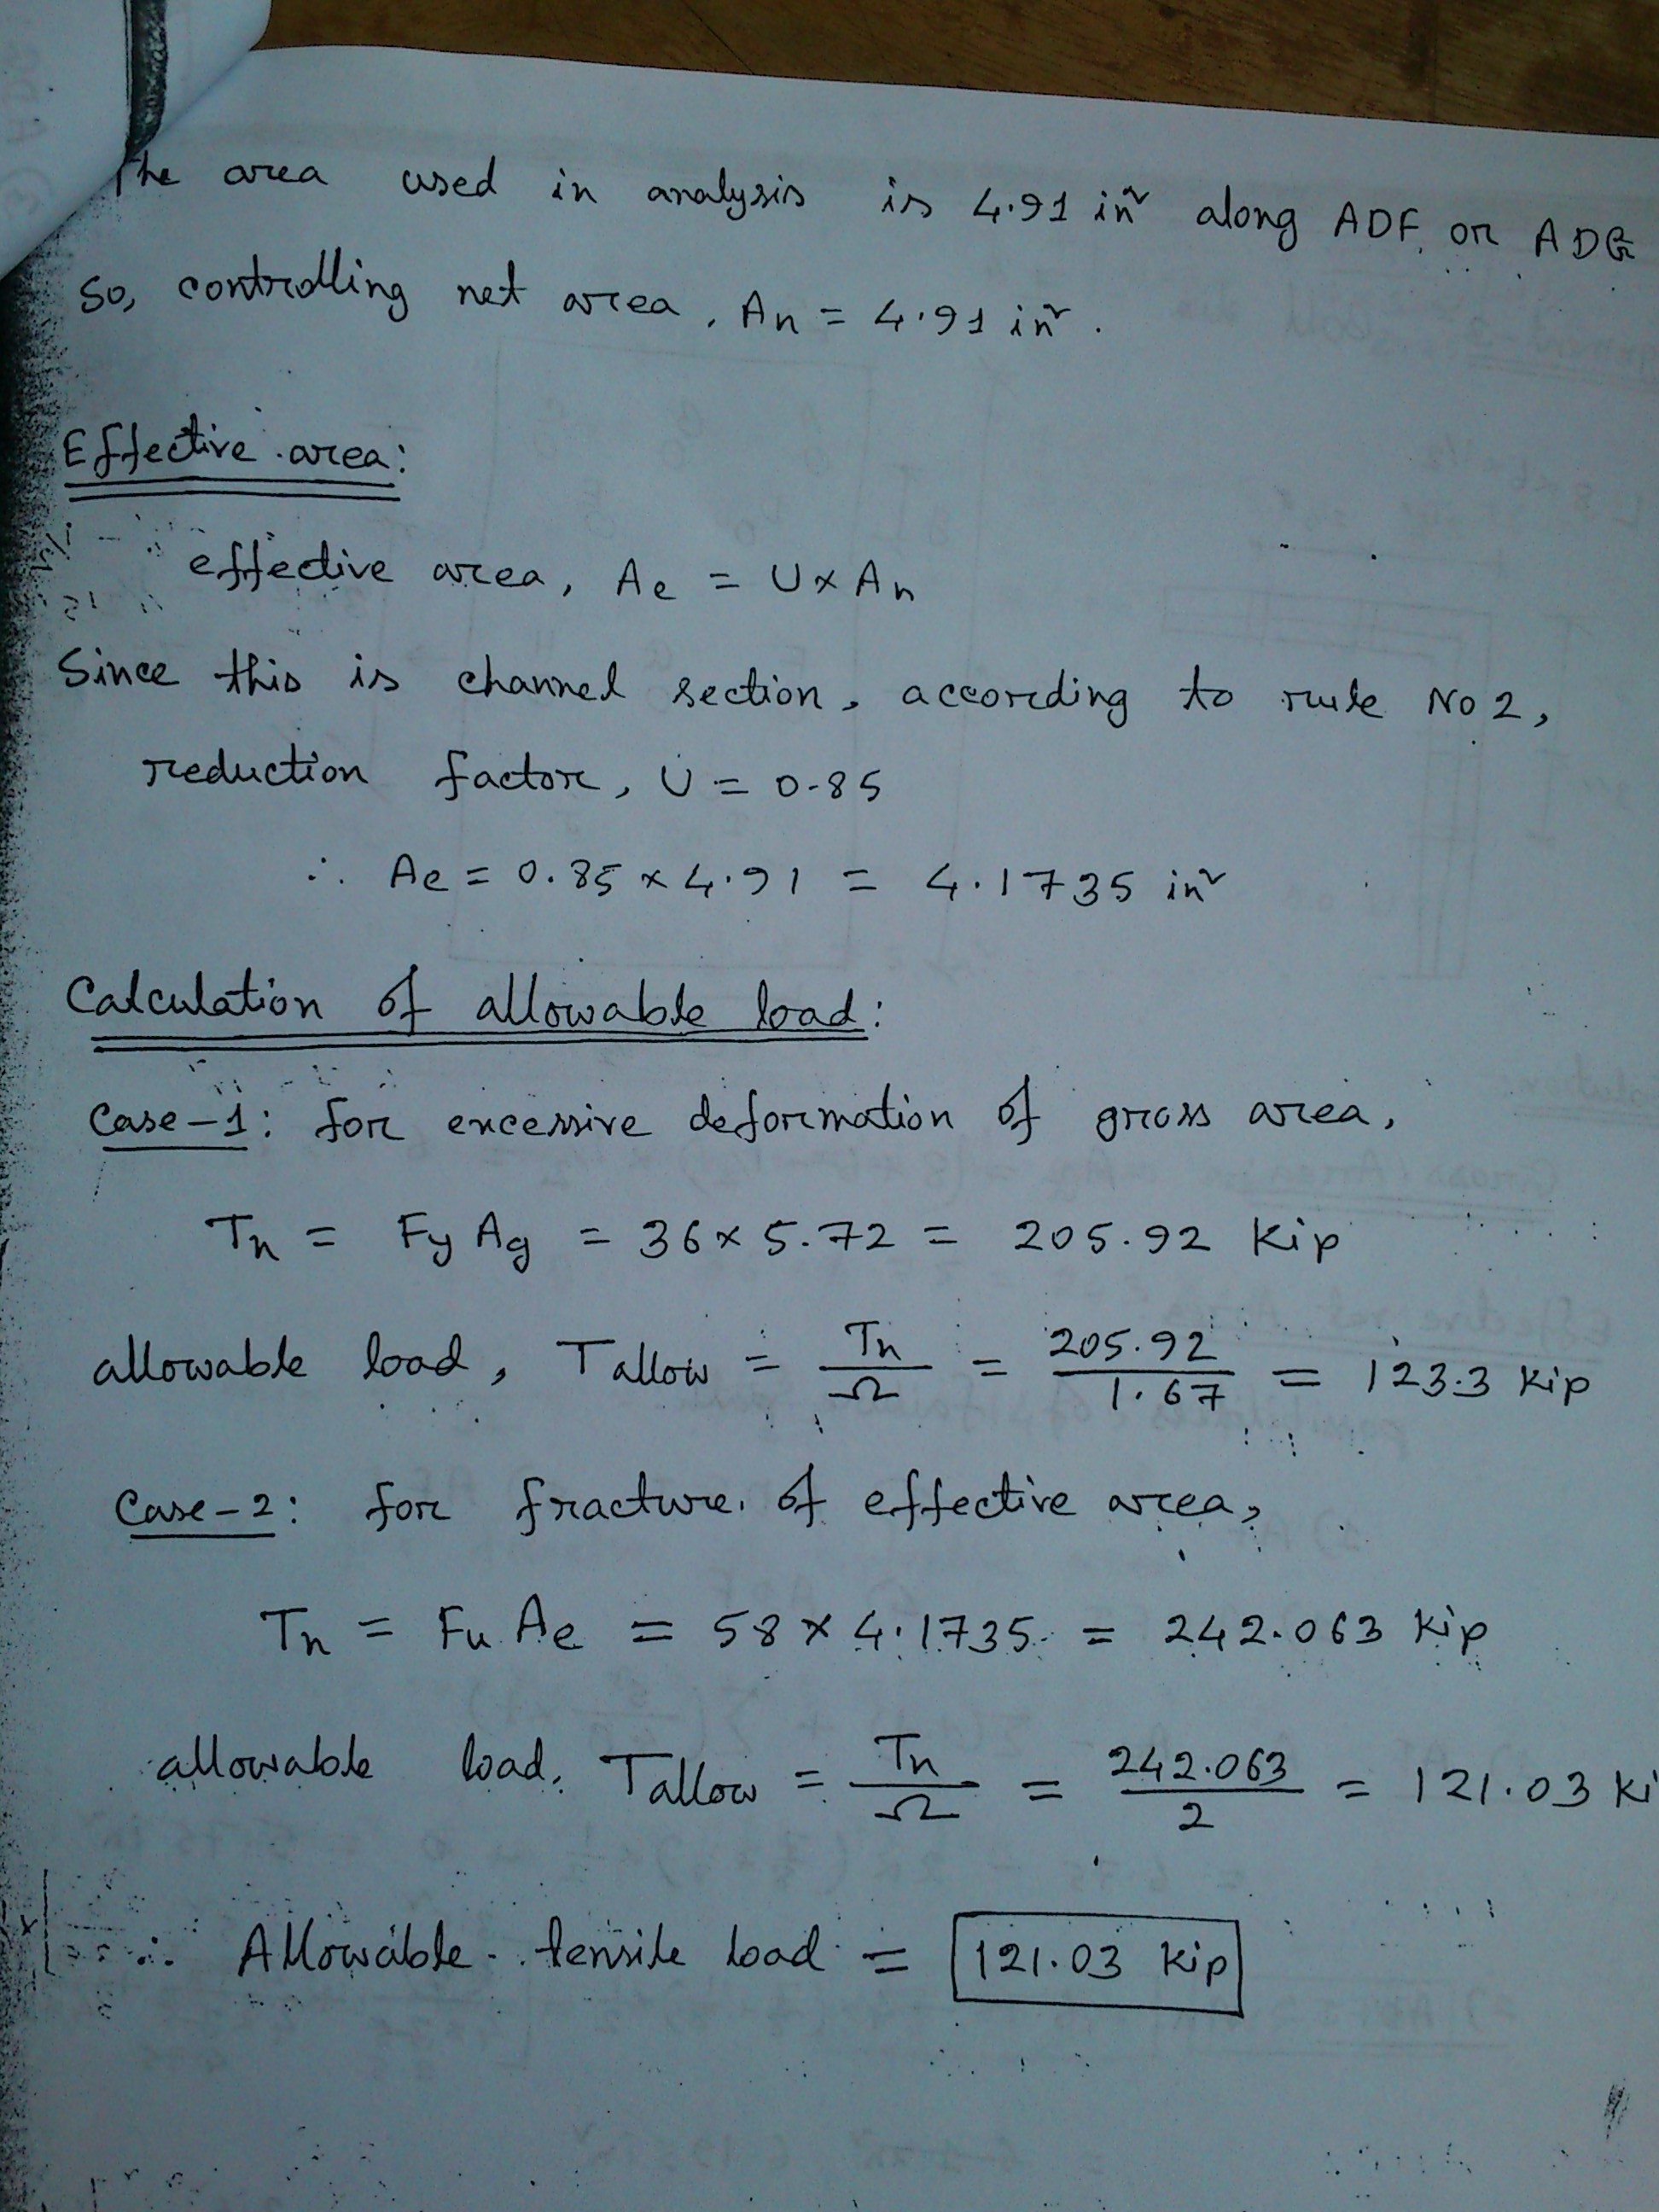 The area used in analysis is 4.91 in² along ADF or ADG
So, controlling net area, An = 4.91 in².
Effective area:
effective area, Ae = U×An
Since this is channel section, according to rule No 2,
reduction factor, U = 0.85
∴ Ae = 0.85 × 4.91 = 4.1735 in²
Calculation of allowable load:
Case-1: for excessive deformation of gross area,
Tn = Fy Ag = 36 × 5.72 = 205.92 Kip
allowable load, Tallow = Tn/Ω = 205.92/1.67 = 123.3 Kip
Case-2: for fracture of effective area,
Tn = Fu Ae = 58 × 4.1735 = 242.063 Kip
allowable load, Tallow = Tn/Ω = 242.063/2 = 121.03 Ki
∴ Allowable tensile load = 121.03 Kip